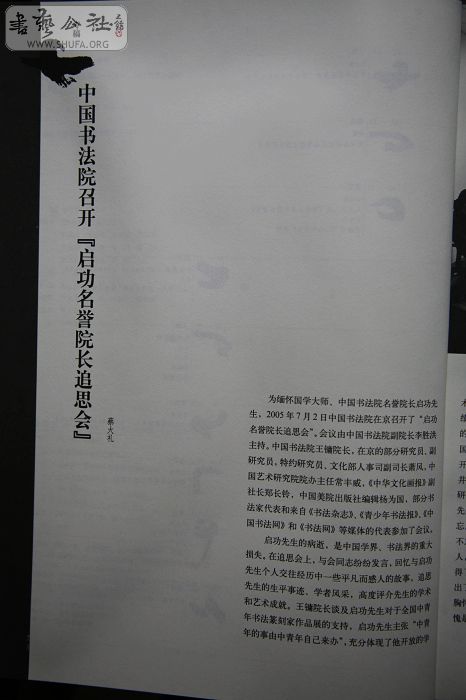 書藝公社
WWW.SHUFA.ORG
中国书法院召开『启功名誉院长追思会』
蔡大礼
为缅怀国学大师、中国书法院名誉院长启功先
生，2005年7月2日中国书法院在京召开了“启功
名誉院长追思会”。会议由中国书法院副院长李胜洪
主持。中国书法院王镛院长，在京的部分研究员、副
研究员，特约研究员、文化部人事司副司长萧风，中
国艺术研究院院办主任常丰威，《中华文化画报》副
社长郑长铃，中国美院出版社编辑杨为国，部分书
法家代表和来自《书法杂志》、《青少年书法报》、《中
国书法网》和《书法网》等媒体的代表参加了会议。
启功先生的病逝，是中国学界、书法界的重大
损失。在追思会上，与会同志纷纷发言，回忆与启功
先生个人交往经历中一些平凡而感人的故事，追思
先生的生平事迹、学者风采，高度评介先生的学术
和艺术成就。王镛院长谈及启功先生对于全国中青
年书法篆刻家作品展的支持，启功先生主张“中青
年的事由中青年自己来办”，充分体现了他开放的学